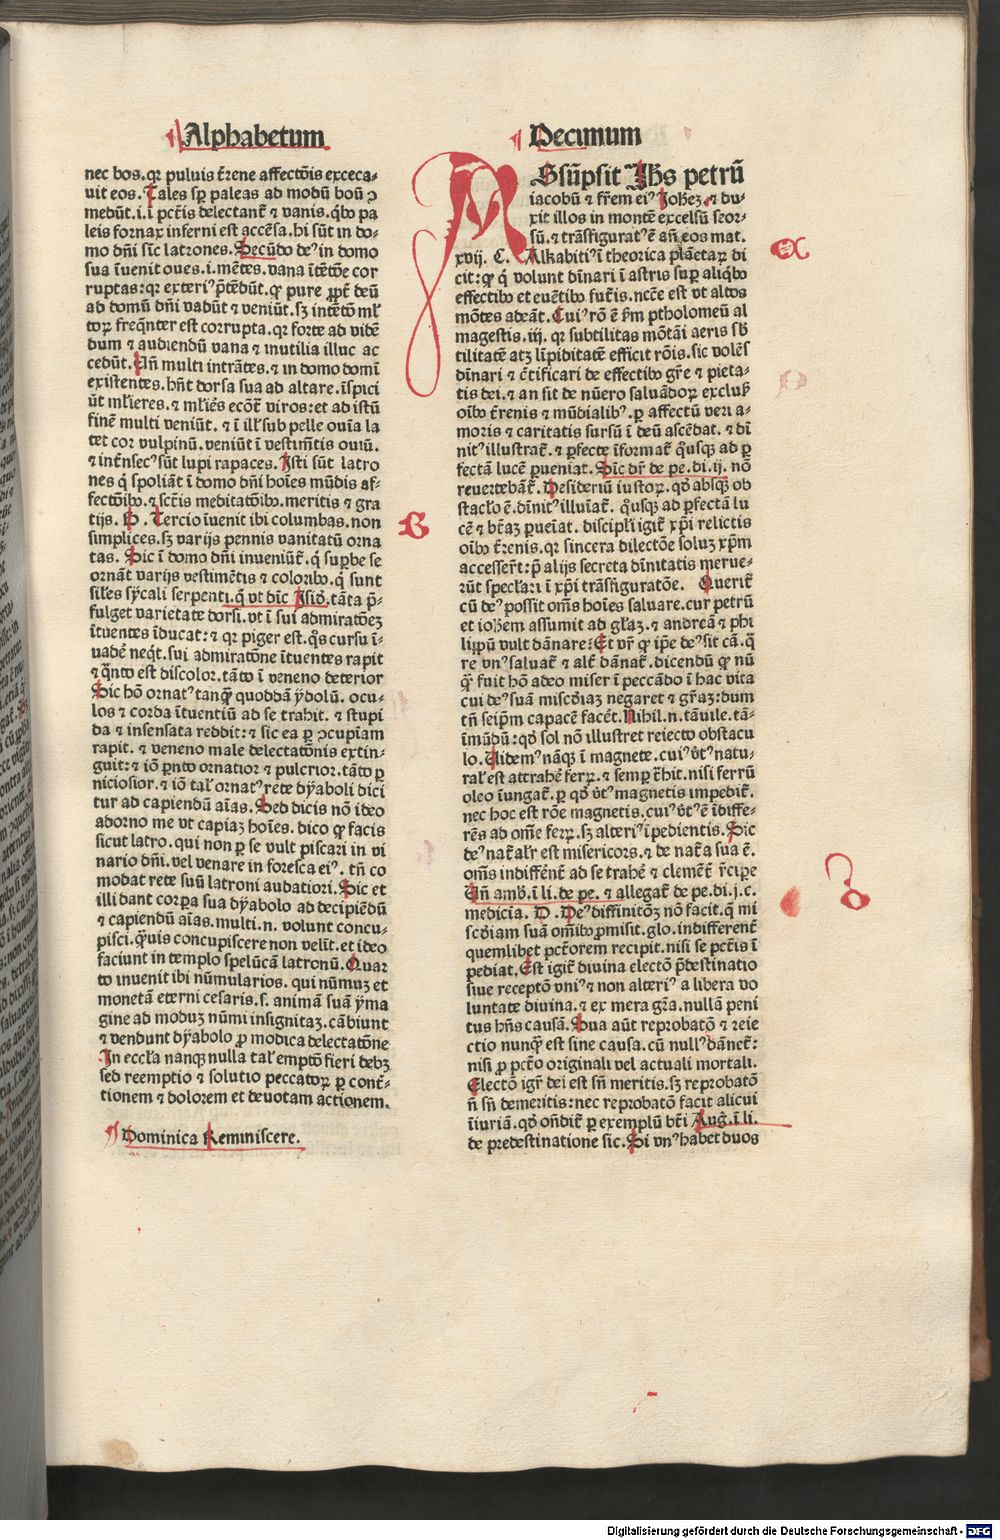 Alphabetum
nec bos. qꝛ puluis t̄rene affectōis exceca-
uit eos. Tales sꝑ paleas ad modū boū ↄ
medūt. i. ī pctīs delectant̄ ⁊ vanis. qͥbꝰ pa
leis fornax inferni est accēsa. hi sūt in do-
mo dn̄i sīc latrones. Secūdo deꝰ in domo
sua īuenit oues. i. mētes. vana ītētōe cor
ruptas: qꝛ exteriꝰ p̄tēdūt. ꝙ pure ꝓpt̄ deū
ad domū dn̄i vadūt ⁊ veniūt. sꝫ intētō ml̄
toꝝ freq̄nter est corrupta. qꝛ forte ad vidē
dum ⁊ audiendū vana ⁊ inutilia illuc ac
cedūt. Un̄ multi intrātes. ⁊ in domo domī
existentes. hn̄t dorsa sua ad altare. īspici
ūt ml̄ieres. ⁊ ml̄iēs ecōt̄ viros: et ad istū
finē multi veniūt. ⁊ ī il̄l sub pelle ouīa la
tet cor vulpinū. veniūt ī vestimētis ouiū.
⁊ int̄nsecꝰ sūt lupi rapaces. Isti sūt latro
nes q̄ spoliāt ī domo dn̄i hoīes mūdis af-
fectōibꝰ. ⁊ sctīs meditatōibꝰ. meritis ⁊ gra
tijs. B. Tercio īuenit ibi columbas. non
simplices. sꝫ varijs pennis vanitatū orna
tas. Sic ī domo dn̄i inveniūt̄. q̄ suꝑbe se
ornāt varijs vestimētis ⁊ coloribꝰ. q̄ sunt
siles sy̾cali serpenti. q̄ vt dīc Isid̾. tāta p̄-
fulget varietate dorsi. vt ī sui admiratōeꝫ
ītuentes īducat: ⁊ qꝛ piger est. q̄s cursu ī-
uadē neqͥt. sui admiratōne ītuentes rapit
⁊ qͣnto est discolor. tāto ī veneno deterior
Sic hō ornatꝰ tanqͣꝫ quoddā ydolū. ocu-
los ⁊ corda ītuentiū ad se trahit. ⁊ stupi
da ⁊ insensata reddit: ⁊ sic ea ꝑ ↄcupīam
rapit. ⁊ veneno male delectatōnis extin-
guit: ⁊ iō ꝑnto ornatior ⁊ pulcrior. tāto ꝑ
niciosior. ⁊ iō tal̄ ornatꝰ rete dyaboli dici
tur ad capiendū aīas. Sed dicis nō ideo
adorno me vt capiaꝫ hoīes. dico ꝙ facis
sicut latro. qui non ꝑ se vult piscari in vi
nario dn̄i. vel venare in foresta eiꝰ. tn̄ co
modat rete suū latroni audatiori. Sic et
illi dant corꝑa sua dyabolo ad decipiēdū
⁊ capiendū aīas. multi. n. volunt concu-
pisci. qͣuis concupiscere non velīt. et ideo
faciunt in templo spelūcā latronū. Quar
to inuenit ibi nūmularios. qui nūmuꝫ et
monetā eterni cesaris. s. animā suā yma
gine ad moduꝫ nūmi insignitaꝫ. cābiunt
⁊ vendunt dyabolo ꝓ modica delectatōne
In eccl̄a nanqꝫ nulla tal̄ emptō fieri debꝫ
sed reemptio ⁊ solutio peccatoꝝ ꝑ cont̄-
tionem ⁊ dolorem et deuotam actionem.
Dominica Reminiscere.
Decimum
ASsūpsit Ihs petrū
iacobū ⁊ fr̄em eiꝰ Joħeꝫ ⁊ du-
xit illos in montē excelsū seor-
sū. ⁊ trāsfiguratꝰ ē an̄ eos mat.
xvij. C. Alkabitiꝰ ī theorica planetaꝝ di
cit: ꝙ q̄ volunt dīnari ī astris suꝑ aliqͥbꝰ
effectibꝰ et euētibꝰ futīs. nccē est vt altos
mōtes adeāt. Cuiꝰ rō ē ẜm ptholomeū al
magestis. iij. qꝛ subtilitas mōtāi aeris sb̄
tilitatē atꝫ līpiditatē efficit rōis. sic volēs
dīnari ⁊ c̄tificari de effectibꝰ gr̄e ⁊ pieta-
tis dei. ⁊ an sit de nūero saluādoꝝ exclusꝭ
oībꝰ t̄renis ⁊ mūdialibꝰ. ꝑ affectū veri a-
moris ⁊ caritatis sursū ī deū ascēdat. ⁊ dī
nitꝰ illustrat̄. ⁊ ꝑfecte īformat̄ qͦusqꝫ ad ꝑ
fectā lucē ꝑueniat. Sic dr̄ de pe. di. ij. nō
reuertebāt̄. Desideriū iustoꝝ. qd̾ absqꝫ ob
stacl̄o ē. dīnitꝰ illuīat̄. qͦusqꝫ ad ꝑfectā lu
cē ⁊ bt̄aꝫ ꝑueīat. discipl̄i igit̄ xp̄i relictis
oībꝰ t̄renis. qꝛ sincera dilectōe soluꝫ xp̄m
accesser̄t: p̄ alijs secreta dīnitatis merue-
rūt specl̄ari ī xp̄i trāsfiguratōe. Querit̄
cū deꝰ possit om̄s hoīes saluare. cur petrū
et ioħem assumit ad gl̄aꝫ. ⁊ andreā ⁊ phi
lippū vult dānare? Et vr̄ ꝙ ip̄e deꝰ sit cā. q̄
re vnꝰ saluat̄ ⁊ alt̄ dānat̄. dicendū ꝙ nū
qͣꝫ fuit hō adeo miser ī peccādo ī hac vita
cui deꝰ suā misc̄diaꝫ negaret ⁊ gr̄aꝫ: dum
tn̄ seip̄m capacē facēt. Nihil. n. tā vile. tā-
īmūdū: qd̾ sol nō illustret reiecto obstacu
lo. Uidemꝰ nāqꝫ ī magnete. cuiꝰ v̾tꝰ natu-
ral̄ est attrahē̄ ferꝝ. ⁊ semꝑ t̄hit. nisi ferrū
oleo īungat̄. ꝑ qd̾ v̾tꝰ magnetis impedit̄.
nec hoc est rōe magnetis. cuiꝰ v̾tꝰ ē īdiffe-
rēs ad om̄e ferꝝ. sꝫ alteriꝰ īpedientis. Sic
deꝰ nat̄al̄r est misericors. ⁊ de nat̄a sua ē.
om̄s indiffēnt̄ ad se trahē̄ ⁊ clement̄ r̄ciꝑe
Un̄ amb̾. ī li. de pe. ⁊ allegat̄ de pe. di. j. c.
medicīa. D. Deꝰ diffinitōꝫ nō facit. q̄ mi
sc̄diam suā om̄ibꝰ ꝓmisit. glo. indifferent̄
quemlibet pctōrem recipit. nisi se pctīs ī
pediat. Est igit̄ diuina electō p̄destinatio
siue receptō vniꝰ ⁊ non alteriꝰ a libera vo
luntate diuina. ⁊ ex mera gr̄a. nullā peni
tus hn̄s causā. Sua aūt reprobatō ⁊ reie
ctio nunqͣꝫ est sine causa. cū nullꝰ dānet̄:
nisi ꝓ pctō originali vel actuali mortali.
Electō igr̄ dei est sn̄ meritis. sꝫ reprobatō
n̄ sn̄ demeritis: nec reprobatō facit alicui
īiuriā. qd̾ on̄dit̄ ꝑ exemplū bt̄i Aug̾. ī li.
de predestinatione sic. Si vnꝰ habet duos
a
B
Digitalisierung gefördert durch die Deutsche Forschungsgemeinschaft - DFG